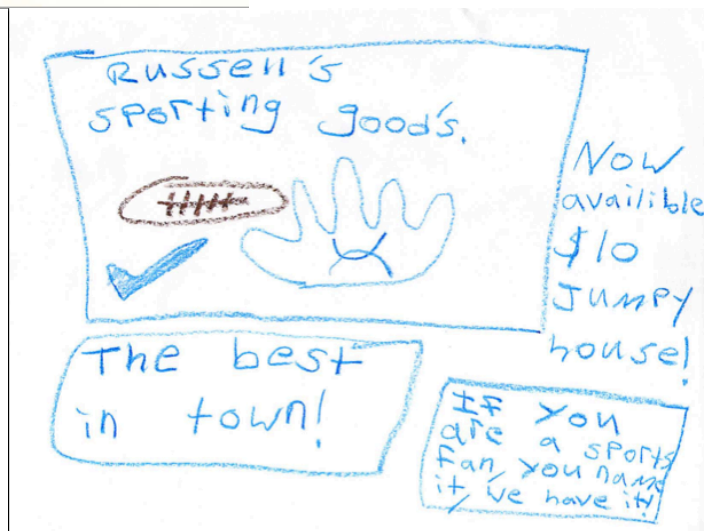 Russell's
sporting good's.
Now
availible
$10
Jumpy
house!
The best
in town!
If you
are a sports
fan, you name
it, we have it!